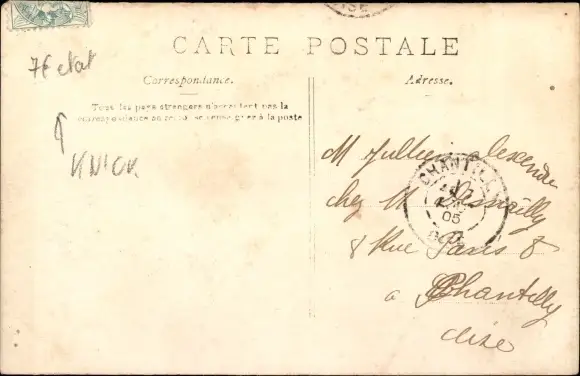 CARTE POSTALE
7€ etat
Correspondance.
Adresse.
Tous les pays étrangers n'acceptent pas la
correspondance au recto se renseigner à la poste
M Jullien Alexandre
chez M
8 Rue Paris 8
a Chantilly
Oise
CHANTILLY
05
OISE